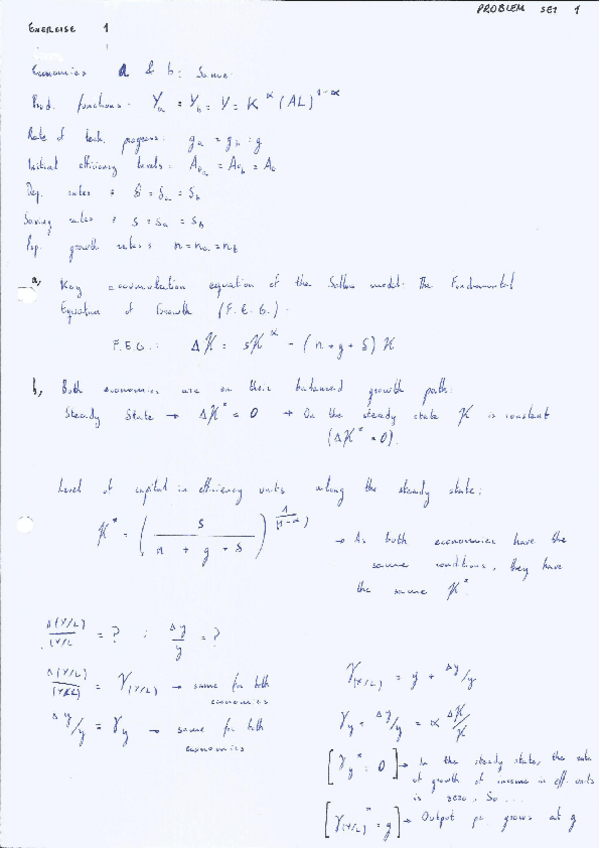 PROBLEM SET 1
EXERCISE 1
Economies a & b: Same:
Prod. functions: Yₐ = Y_b = Y = K^α (AL)^{1-α}
Rate of tech. progress: gₐ = g_b = g
Initial efficiency levels: A₀ₐ = A₀_b = A₀
Dep. rates: δ = δₐ = δ_b
Saving rates: s = sₐ = s_b
Pop. growth rates: n = nₐ = n_b
a, Key accumulation equation of the Solow model: the Fundamental
Equation of Growth (F.E.G.).
F.E.G.: ΔK = sK^α - (n + g + δ) K
b, Both economies are on their balanced growth path:
Steady State → ΔK* = 0 → On the steady state K is constant
(ΔK* = 0).
Level of capital in efficiency units along the steady state:
K* = (s / (n + g + δ))^{1/(1-α)}
→ As both economies have the
same conditions, they have
the same K*.
Δ(Y/L)/(Y/L) = ? ; Δy/y = ?
Δ(Y/L)/(Y/L) = γ(Y/L) → same for both
economies
Δy/y = γy → same for both
economies
γ(Y/L) = g + Δy/y
γy = Δy/y = α ΔK/K
[γy* = 0] → In the steady state, the rate
of growth of income in eff. units
is zero. So...
[γ(Y/L)* = g] → Output pc. grows at g